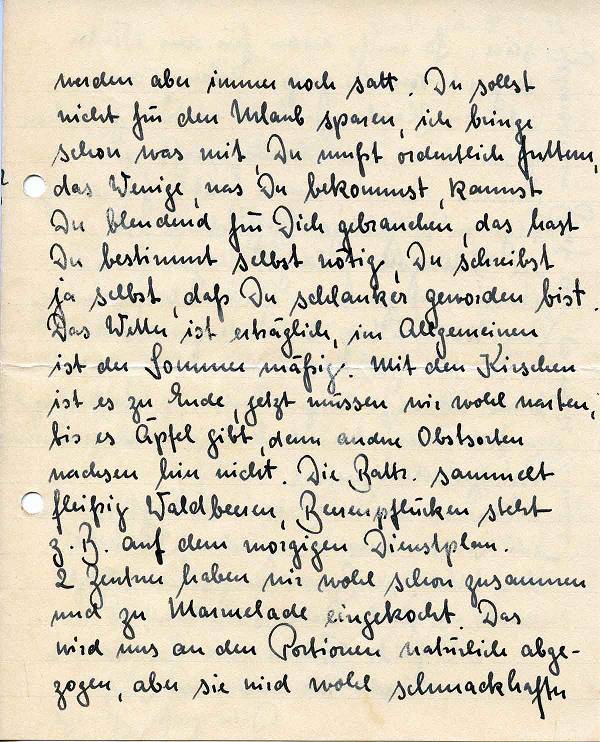 werden aber immer noch satt. Du sollst
nicht für den Urlaub sparen, ich bringe
schon was mit, Du mußt ordentlich futtern,
das Wenige, was Du bekommst, kannst
Du blendend für Dich gebrauchen, das hast
Du bestimmt selbst nötig, Du schreibst
ja selbst, daß Du schlanker geworden bist.
Das Wetter ist erträglich, im Allgemeinen
ist der Sommer mäßig. Mit den Kirschen
ist es zu Ende, jetzt müssen wir wohl warten,
bis es Äpfel gibt, denn andre Obstsorten
wachsen hier nicht. Die Battr. sammelt
fleißig Waldbeeren, Beerenpflücken steht
z. B. auf dem morgigen Dienstplan.
2 Zentner haben wir wohl schon zusammen
und zu Marmelade eingekocht. Das
wird uns an den Portionen natürlich abge-
zogen, aber sie wird wohl schmackhafter